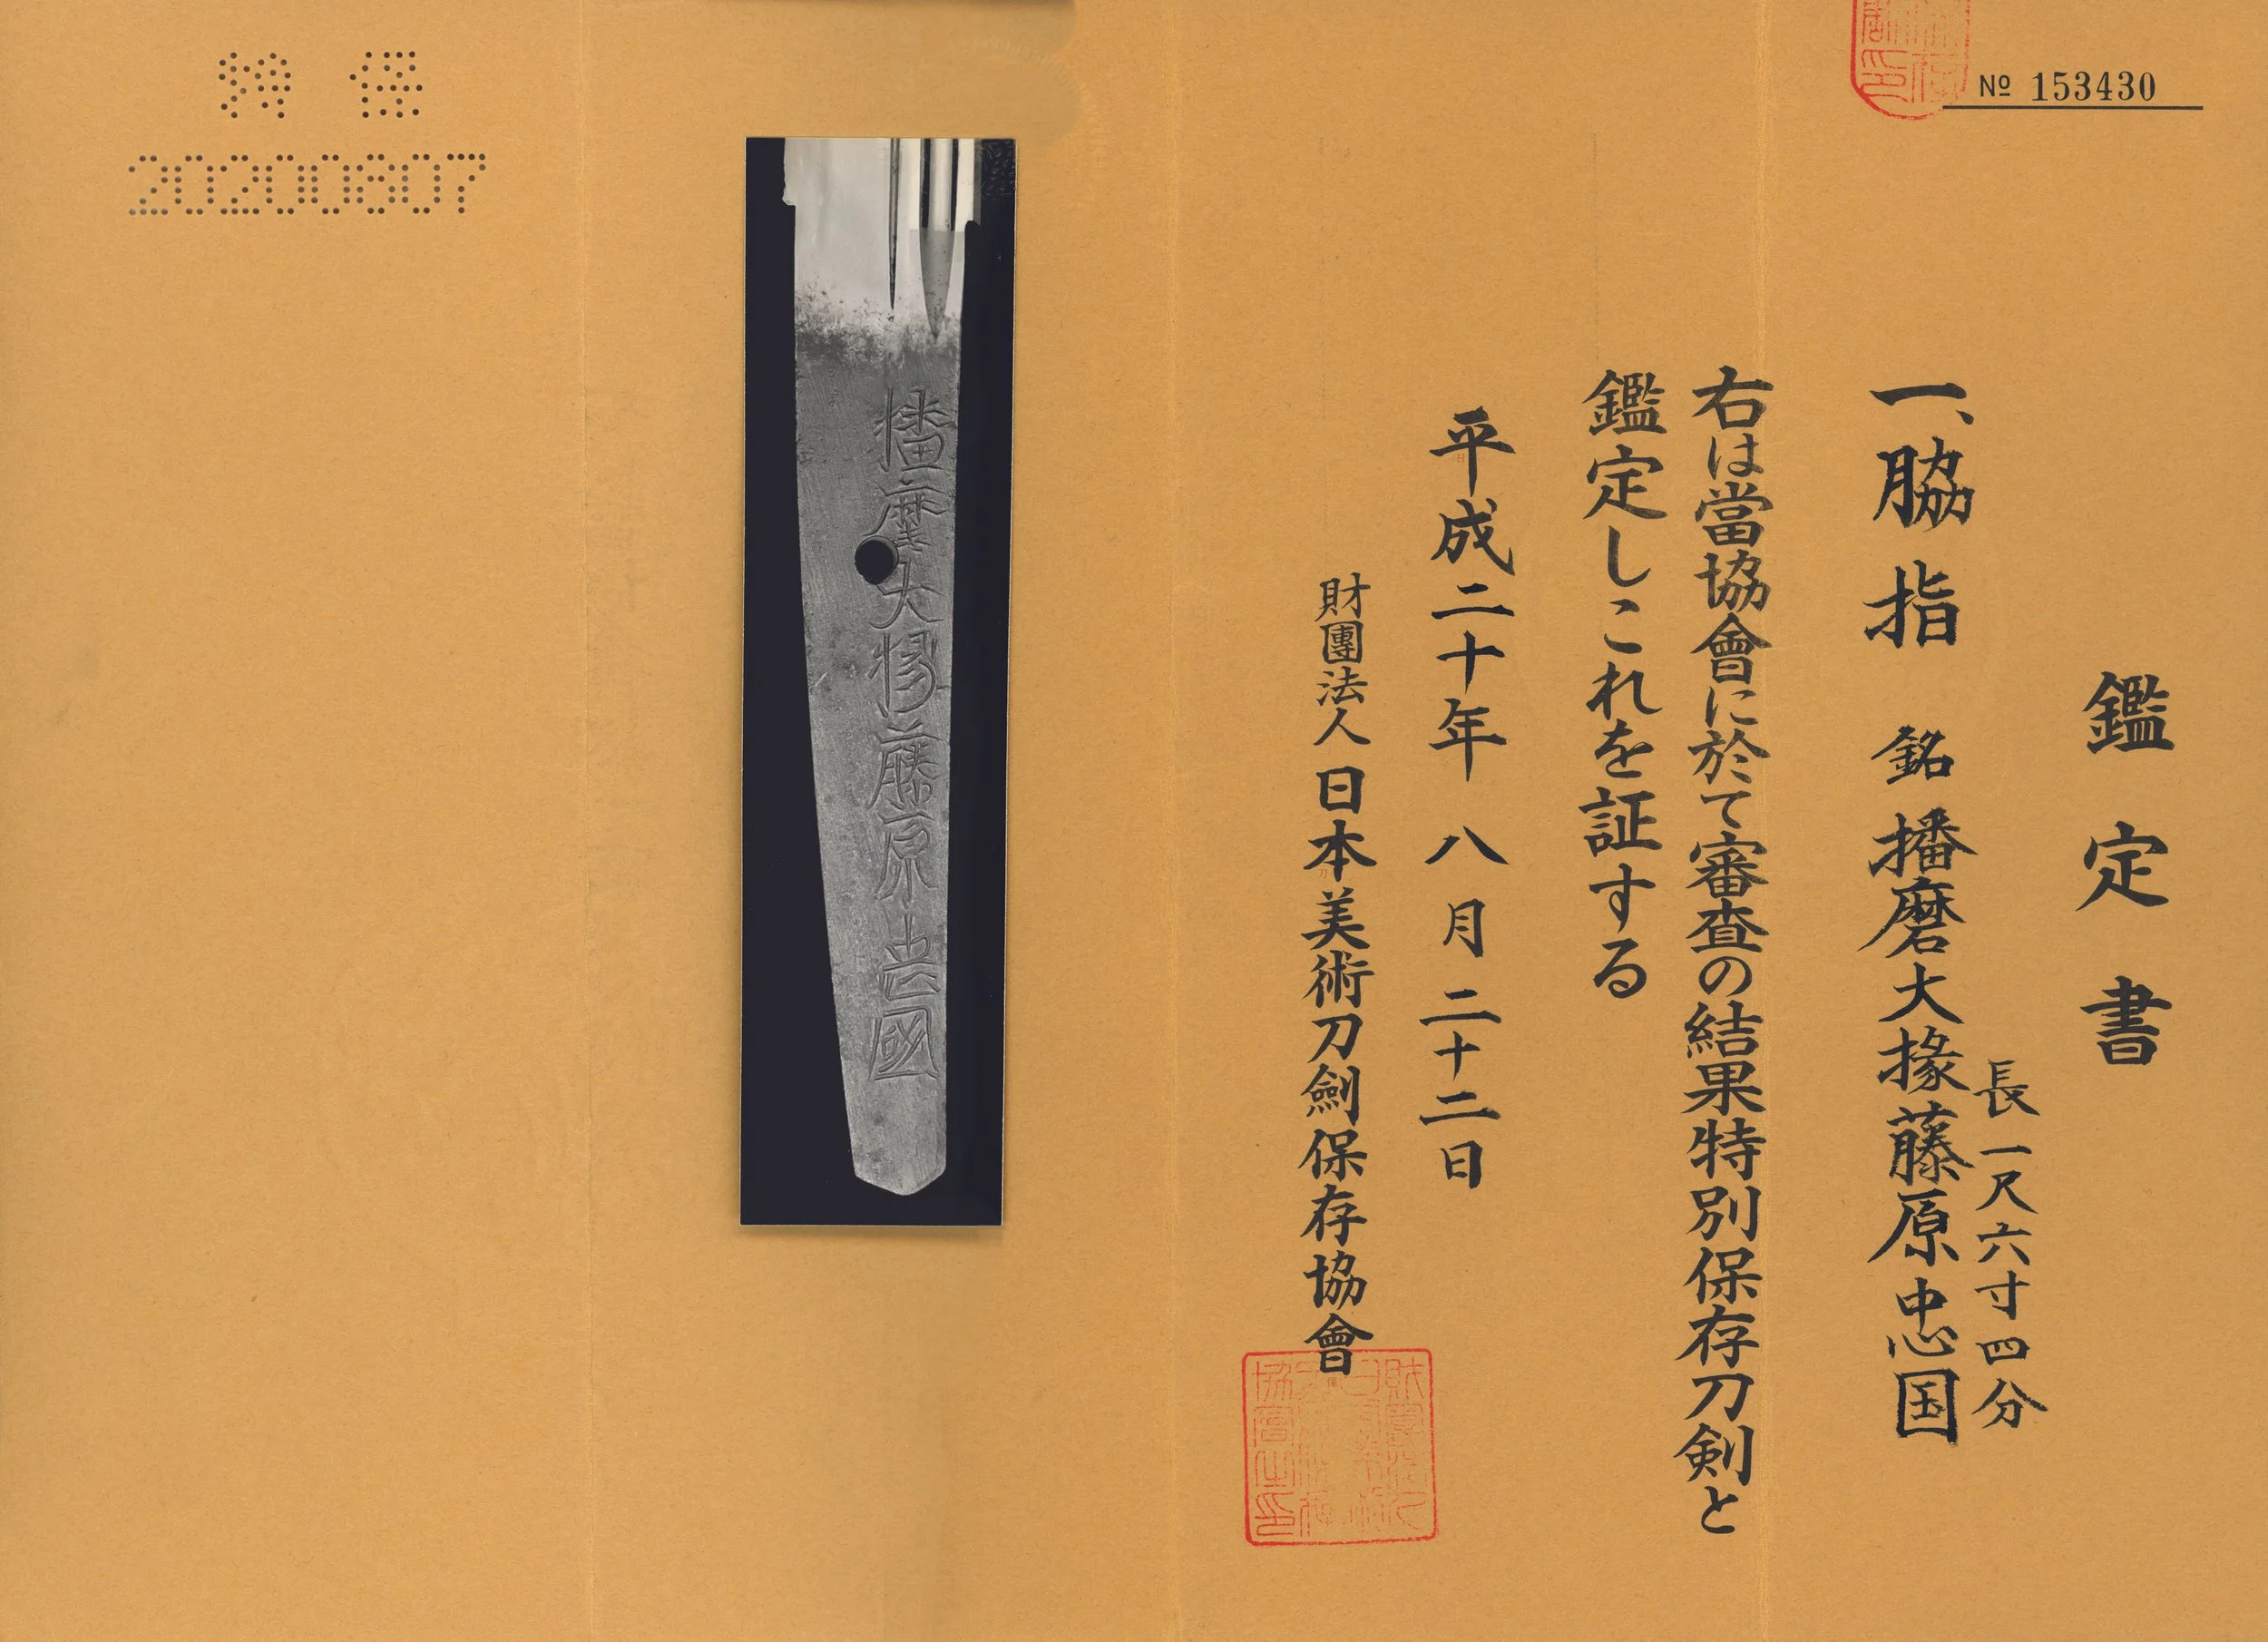 № 153430
鑑定書
長一尺六寸四分
一、脇指 銘 播磨大掾藤原忠国
右は當協會に於て審査の結果特別保存刀剣と
鑑定しこれを証する
平成二十年 八月二十二日
財團法人 日本美術刀劍保存協會
播磨大掾藤原忠國
特保
20200807